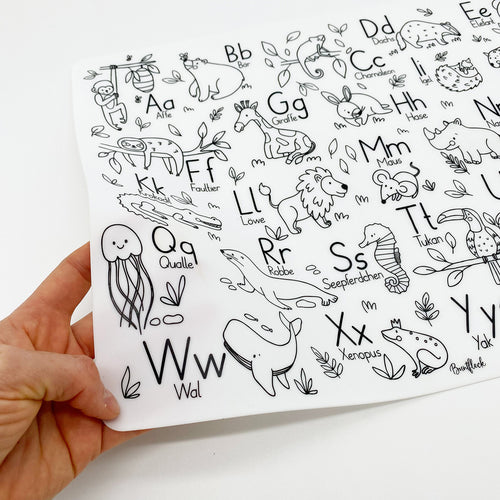 Aa
Affe
Bb
Bär
Cc
Chamäleon
Dd
Dachs
Ee
Elefant
Ff
Faultier
Gg
Giraffe
Hh
Hase
Ii
Igel
Kk
Krokodil
Ll
Löwe
Mm
Maus
Qq
Qualle
Rr
Robbe
Ss
Seepferdchen
Tt
Tukan
Ww
Wal
Xx
Xenopus
Yy
Yak